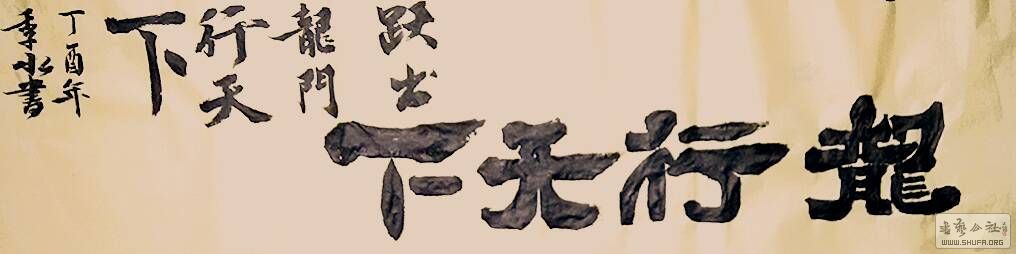 龍行天下
跃出
龍門
行天
下
丁酉年
季水書
书藝公社
WWW.SHUFA.ORG